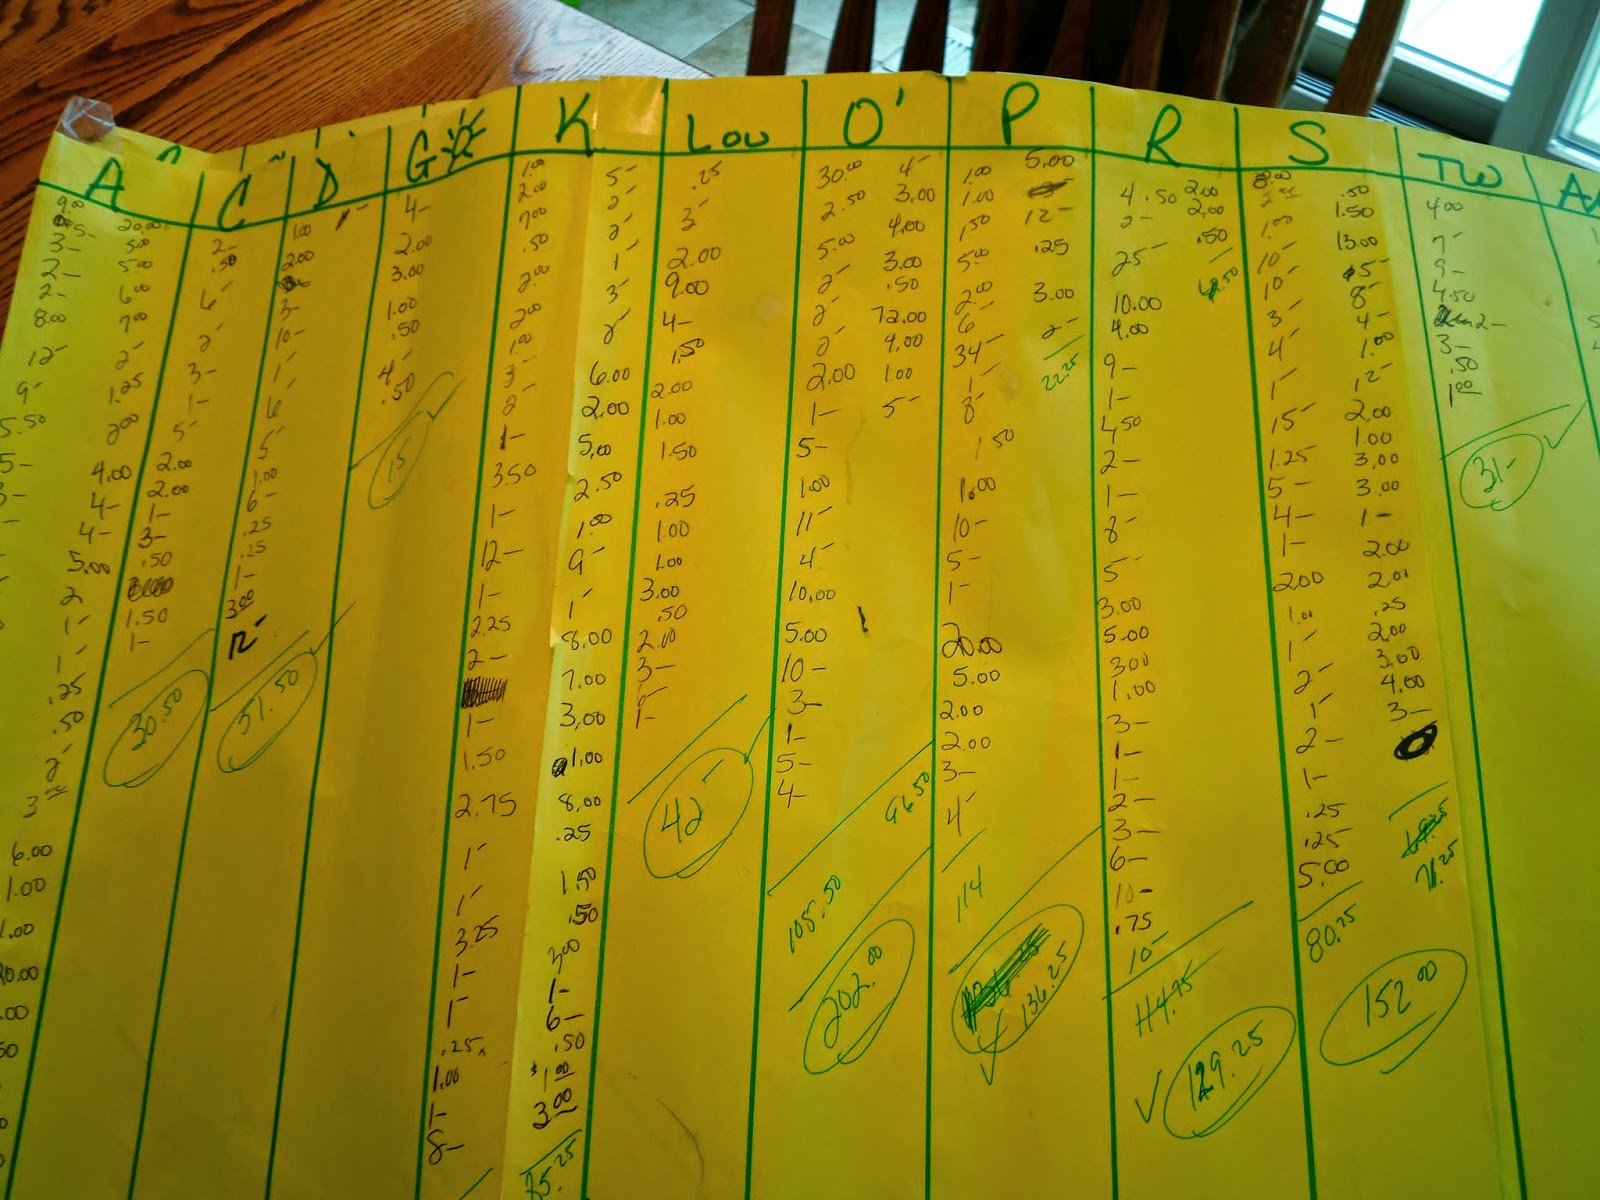 A C D G K Lou O' P R S TW
9.00
3-
2-
2-
8.00
12-
9-
5.50
5-
20.00
5.00
5.00
6.00
7.00
2-
1.25
2.00
4.00
4-
4-
5.00
2
1-
1-
.25
.50
2-
3.00
6.00
1.00
2-
.50
6-
2-
3-
1-
5-
2.00
2.00
1-
3-
.50
1.50
1-
30.50
1.00
2.00
3-
10-
1-
6-
5-
1.00
6-
.25
.25
1-
3.00
12-
51.50
4-
2.00
3.00
1.00
.50
4-
.50
15
1.00
2.00
7.00
.50
2.00
2.00
1.00
3-
2-
1-
3.50
1-
12-
1-
2.25
2-
1-
1.50
2.75
1-
1-
3.25
1-
1-
.25
1.00
1-
8-
5-
2-
2-
1-
3-
2-
6.00
2.00
5.00
2.50
1.00
9-
1-
8.00
7.00
3.00
1.00
8.00
.25
1.50
.50
3.00
1-
6-
.50
1.00
3.00
85.25
.25
3-
2.00
9.00
4-
1.50
2.00
1.00
1.50
.25
1.00
1.00
3.00
.50
2.00
3-
6-
1-
42-
30.00
2.50
5.00
2-
2-
2-
2.00
1-
5-
1.00
11-
4-
10.00
5.00
10-
3-
1-
5-
4-
105.50
4-
3.00
4.00
3.00
.50
72.00
4.00
1.00
5-
96.50
202.00
1.00
1.00
1.50
5.00
2.00
6-
34-
1-
8-
1.50
1.00
10-
5-
1-
20.00
5.00
2.00
2.00
3-
4-
114
5.00
12-
.25
3.00
2-
22.25
136.25
4.50
2-
25-
10.00
4.00
9-
1-
4.50
2-
1-
8-
5-
3.00
5.00
3.00
1.00
3-
1-
1-
2-
3-
6-
10-
.75
10-
114.75
2.00
2.00
.50
129.25
8.00
2-
1.00
10-
10-
3-
4-
1-
15-
1.25
5-
4-
1-
2.00
1.00
1-
2-
1-
2-
1-
.25
.25
5.00
80.25
.50
1.50
13.00
5-
8-
4-
1.00
12-
2.00
1.00
3.00
3.00
1-
2.00
2.01
.25
2.00
3.00
4.00
3-
71.25
152.00
4.00
7-
9-
4.50
2-
3-
.50
1.00
31-